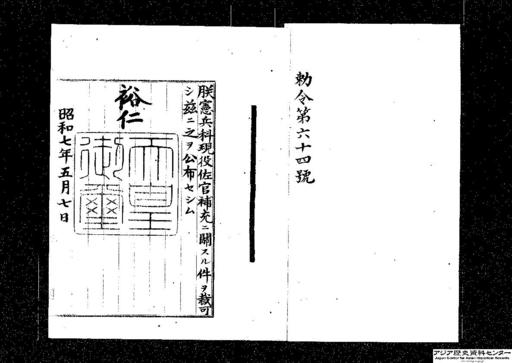 勅令第六十四號
朕憲兵科現役佐官補充ニ關スル件ヲ裁可
シ茲ニ之ヲ公布セシム
裕仁
天皇
御璽
昭和七年五月七日
アジア歴史資料センター
Japan Center for Asian Historical Records